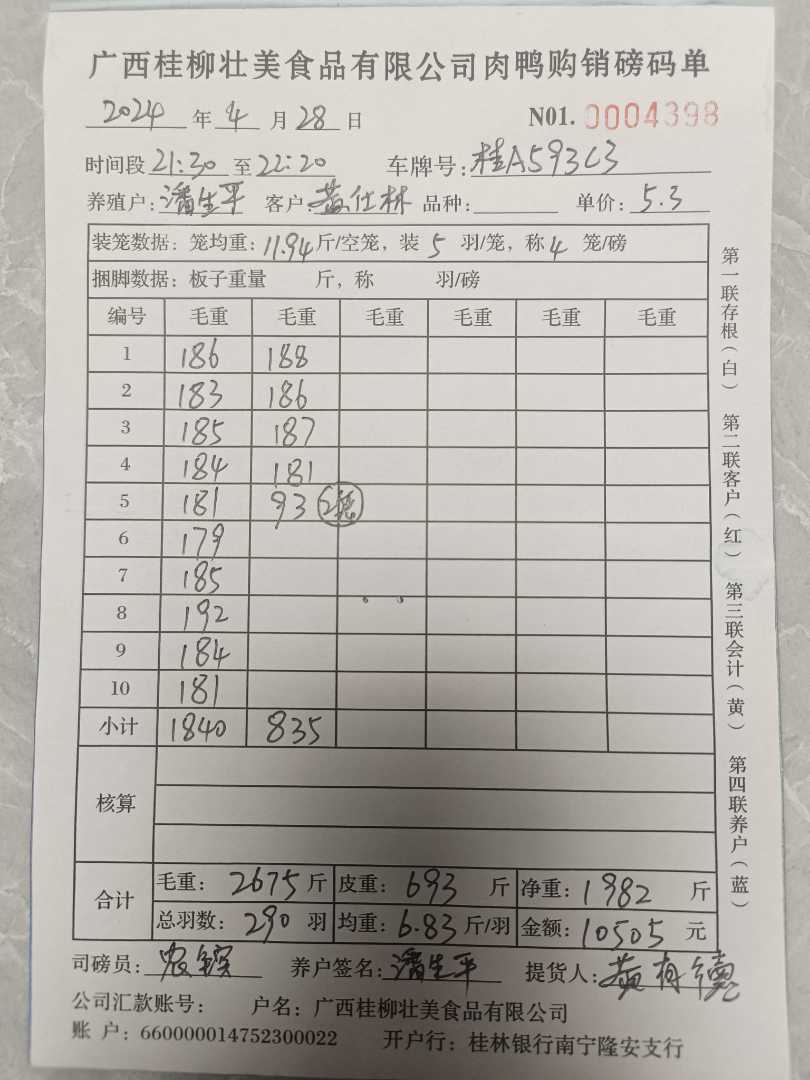 广西桂柳壮美食品有限公司肉鸭购销磅码单
2024 年 4 月 28 日 N01. 0004398
时间段 21:30 至 22:20 车牌号: 桂A593C3
养殖户: 潘生平 客户: 黄仕林 品种: 单价: 5.3
装笼数据: 笼均重: 11.94 斤/空笼, 装 5 羽/笼, 称 4 笼/磅
捆脚数据: 板子重量 斤, 称 羽/磅
编号 毛重 毛重 毛重 毛重 毛重 毛重
1 186 188
2 183 186
3 185 187
4 184 181
5 181 93 2笼
6 179
7 185
8 192
9 184
10 181
小计 1840 835
核算
合计 毛重: 2675 斤 皮重: 693 斤 净重: 1982 斤
总羽数: 290 羽 均重: 6.83 斤/羽 金额: 10505 元
司磅员: 养户签名: 潘生平 提货人: 黄
公司汇款账号: 户名: 广西桂柳壮美食品有限公司
账 户: 660000014752300022 开户行: 桂林银行南宁隆安支行
第一联存根(白) 第二联客户(红) 第三联会计(黄) 第四联养户(蓝)